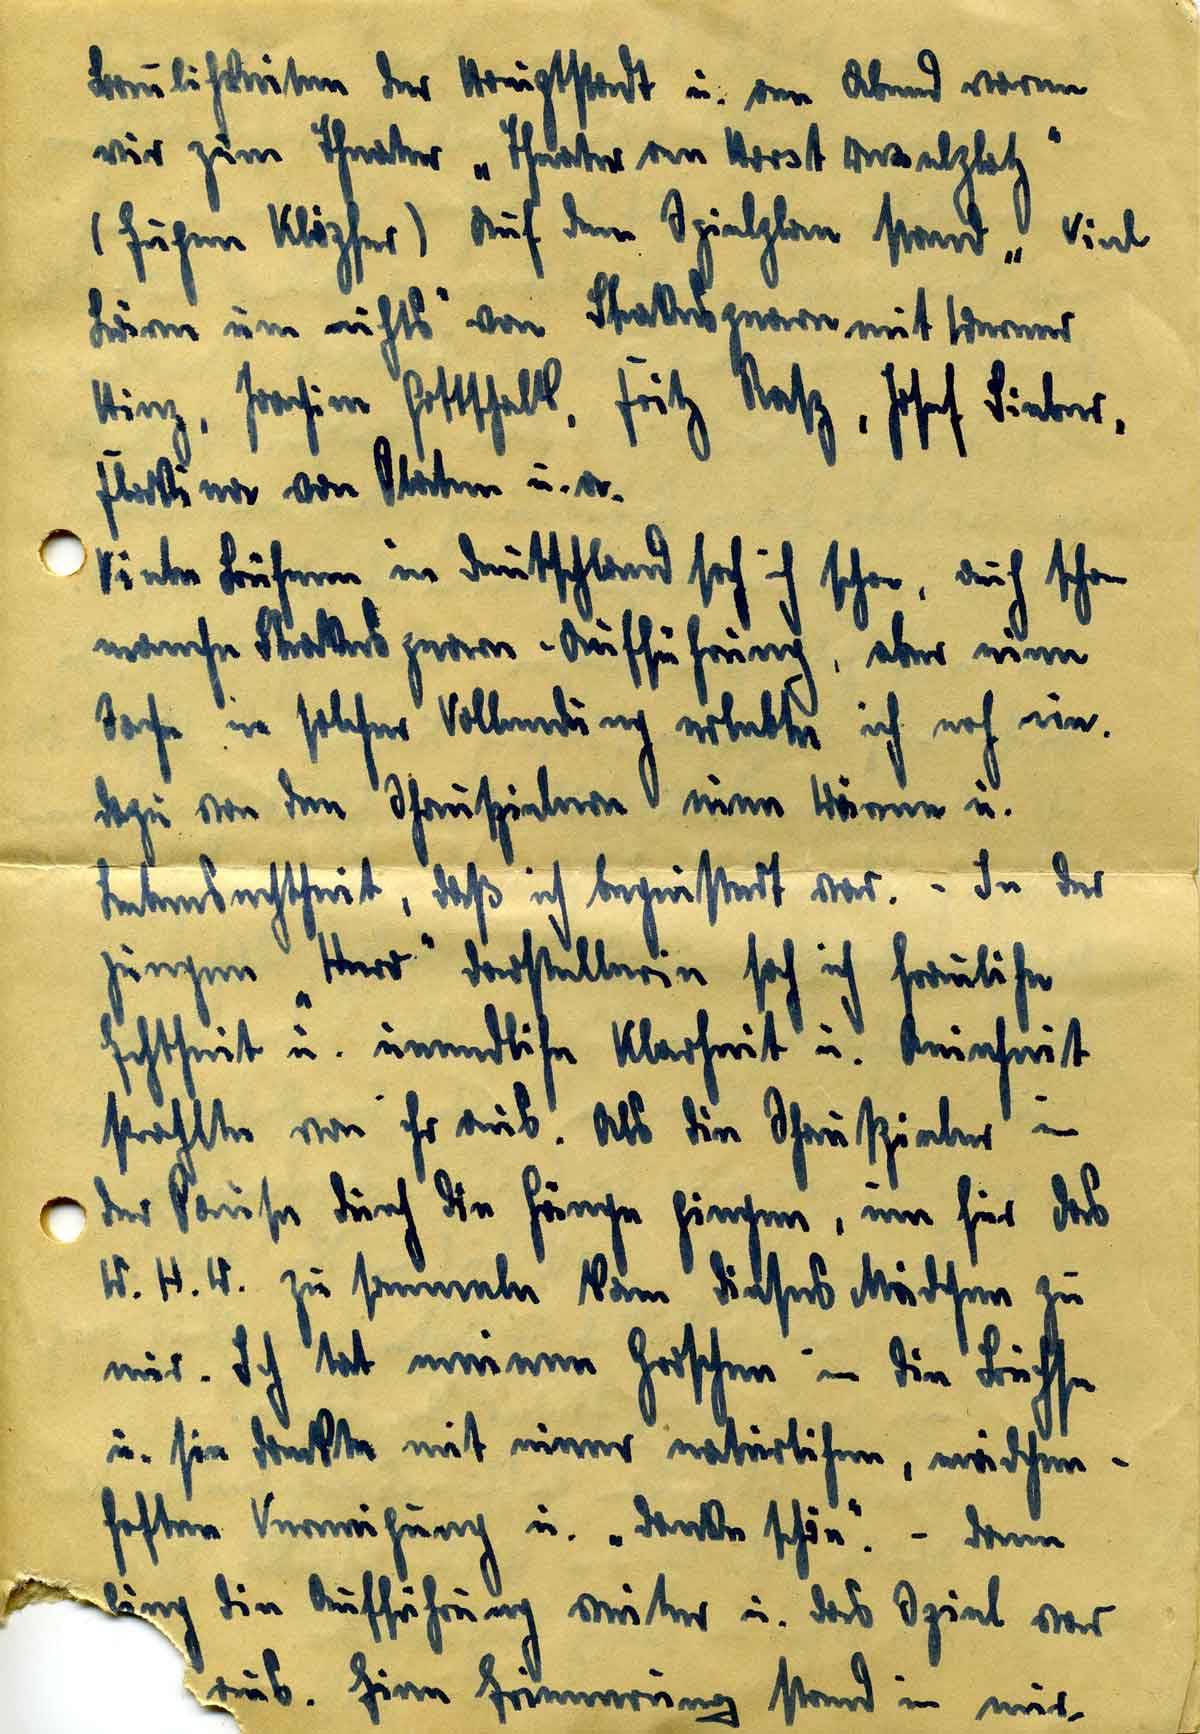 Baulichkeiten der Hauptstadt u. am Abend waren
wir zum Theater „Theater am Horst Wesselplatz"
(Eugen Klöpfer) Auf dem Spielplan stand „Viel
Lärm um nichts" von Shakespeare mit Werner
Hinz, Joachim Gottschalk, Fritz Rasp, Josef Sieber,
Flockina von Platen u.a.
Viele Bühnen in Deutschland sah ich schon, auch schon
manche Shakespeare-Aufführung, aber eine
Sache in solcher Vollendung erlebte ich noch nie.
dazu von den Schauspielern eine Wärme u.
Lebensechtheit, daß ich begeistert war. - In der
jungen „Hero" darstellerin sah ich frauliche
Echtheit u. unendliche Klarheit u. Reinheit
strahlte von ihr aus. Als die Schauspieler in
der Pause durch die Gänge gingen, um für das
W.H.W. zu sammeln kam dieses Mädchen zu
mir. Ich tat meinen Groschen in die Büchse
u. sie dankte mit einer natürlichen, mädchen-
haften Verneigung u. „danke schön". - dann
ging die Aufführung weiter u. das Spiel war
aus. Eine Erinnerung stand in mir.